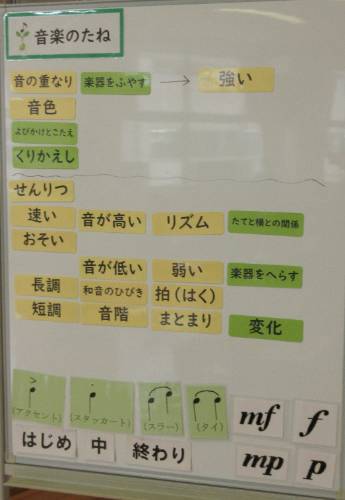 音楽のたね
音の重なり 楽器をふやす → 強い
音色
よびかけとこたえ
くりかえし
せんりつ
速い 音が高い リズム たてと横との関係
おそい
音が低い 弱い 楽器をへらす
長調 和音のひびき 拍(はく)
短調 音階 まとまり 変化
(アクセント) (スタッカート) (スラー) (タイ) mf f
はじめ 中 終わり mp p